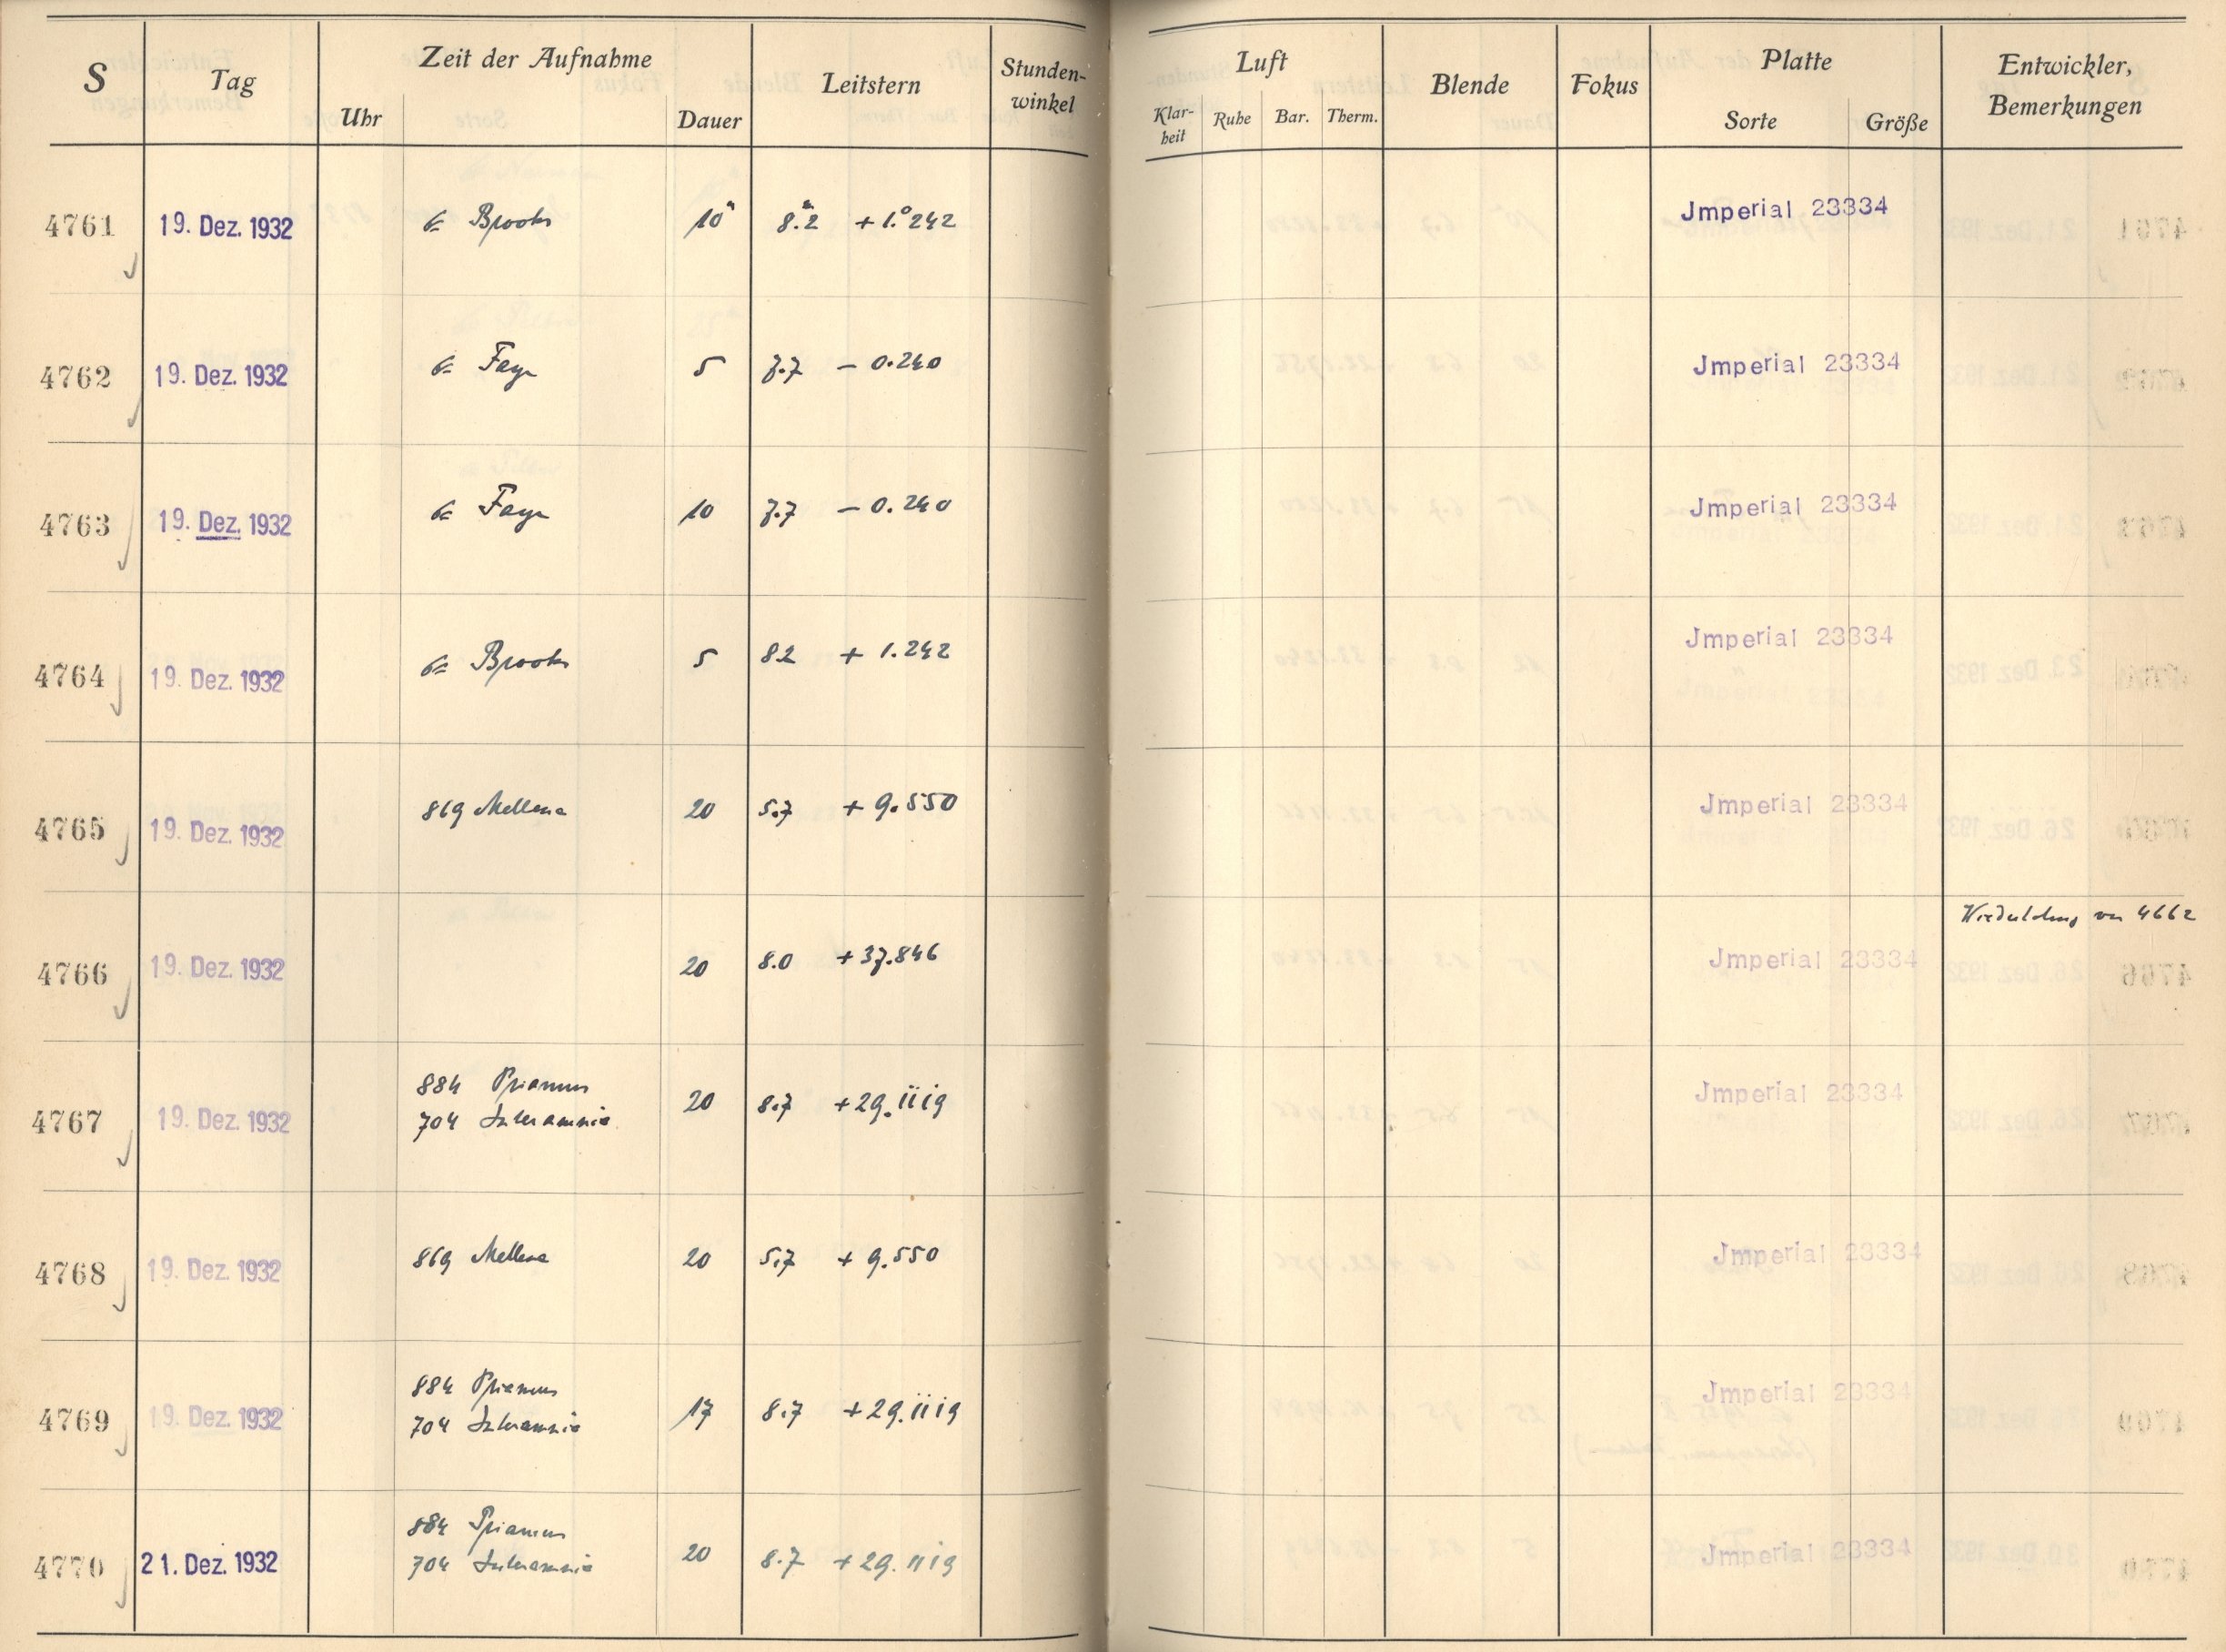 S Tag Zeit der Aufnahme Leitstern Stunden-winkel Luft Blende Fokus Platte Entwickler, Bemerkungen
Uhr Dauer Klar-heit Ruhe Bar. Therm. Sorte Größe
4761 19. Dez. 1932 Brooks 10ᵐ 8.ᵐ2 +1.°242 Jmperial 23334
4762 19. Dez. 1932 Faye 5 7.7 – 0.240 Jmperial 23334
4763 19. Dez. 1932 Faye 10 7.7 – 0.240 Jmperial 23334
4764 19. Dez. 1932 Brooks 5 8.2 + 1.242 Jmperial 23334
4765 19. Dez. 1932 869 Mellena 20 5.7 + 9.550 Jmperial 23334
4766 19. Dez. 1932 20 8.0 +37.846 Jmperial 23334 Wiederholung von 4662
4767 19. Dez. 1932 884 Priamus
704 Interamnia 20 8.7 +29.1119 Jmperial 23334
4768 19. Dez. 1932 869 Mellena 20 5.7 + 9.550 Jmperial 23334
4769 19. Dez. 1932 884 Priamus
704 Interamnia 17 8.7 +29.1119 Jmperial 23334
4770 21. Dez. 1932 884 Priamus
704 Interamnia 20 8.7 +29.1119 Jmperial 23334